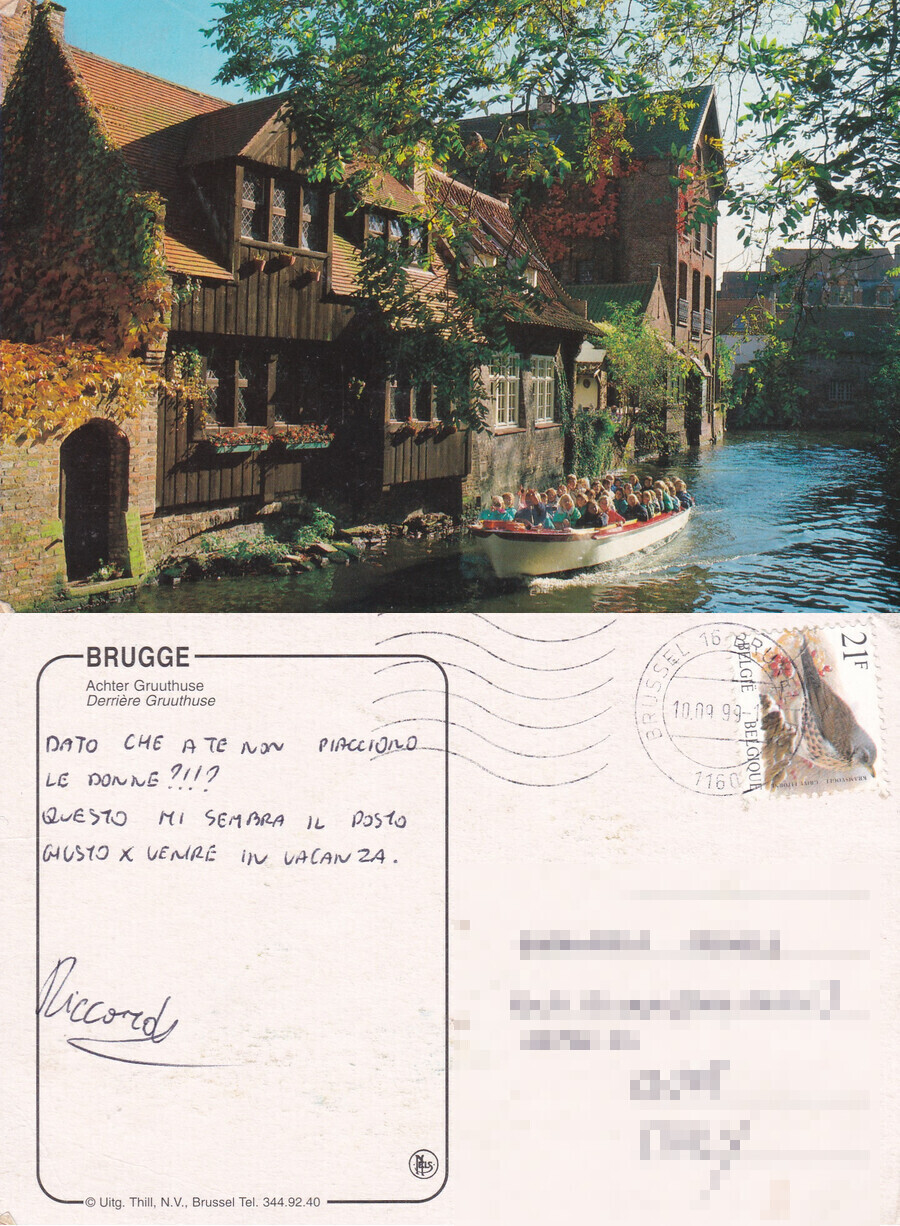 BRUGGE
Achter Gruuthuse
Derrière Gruuthuse
DATO CHE A TE NON PIACCIONO
LE DONNE?!!?
QUESTO MI SEMBRA IL POSTO
GIUSTO X VENIRE IN VACANZA.
Riccardo
© Uitg. Thill, N.V., Brussel Tel. 344.92.40
NELS
BRUSSEL 16 BRUXEL
10.09.99
1160
21F
BELGIË - BELGIQUE
KRAMSVOGEL GRIVE LITORNE